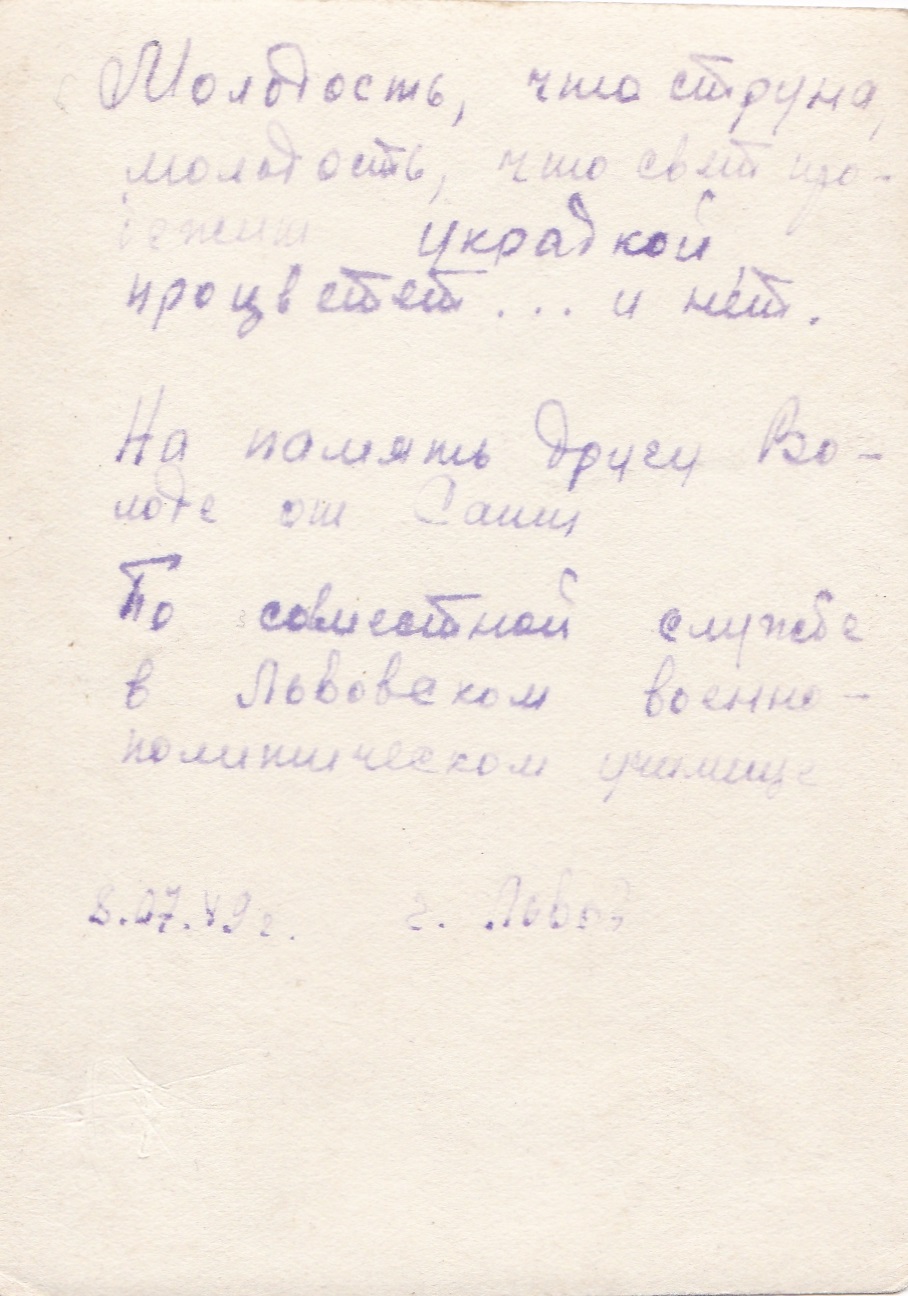 Молодость, что струна,
молодость, что свет про-
бежит украдкой,
процветет... и нет.
На память другу Во-
лоде от Саши
По совместной службе
в Львовском военно-
политическом училище
8.07.49г. г. Львов